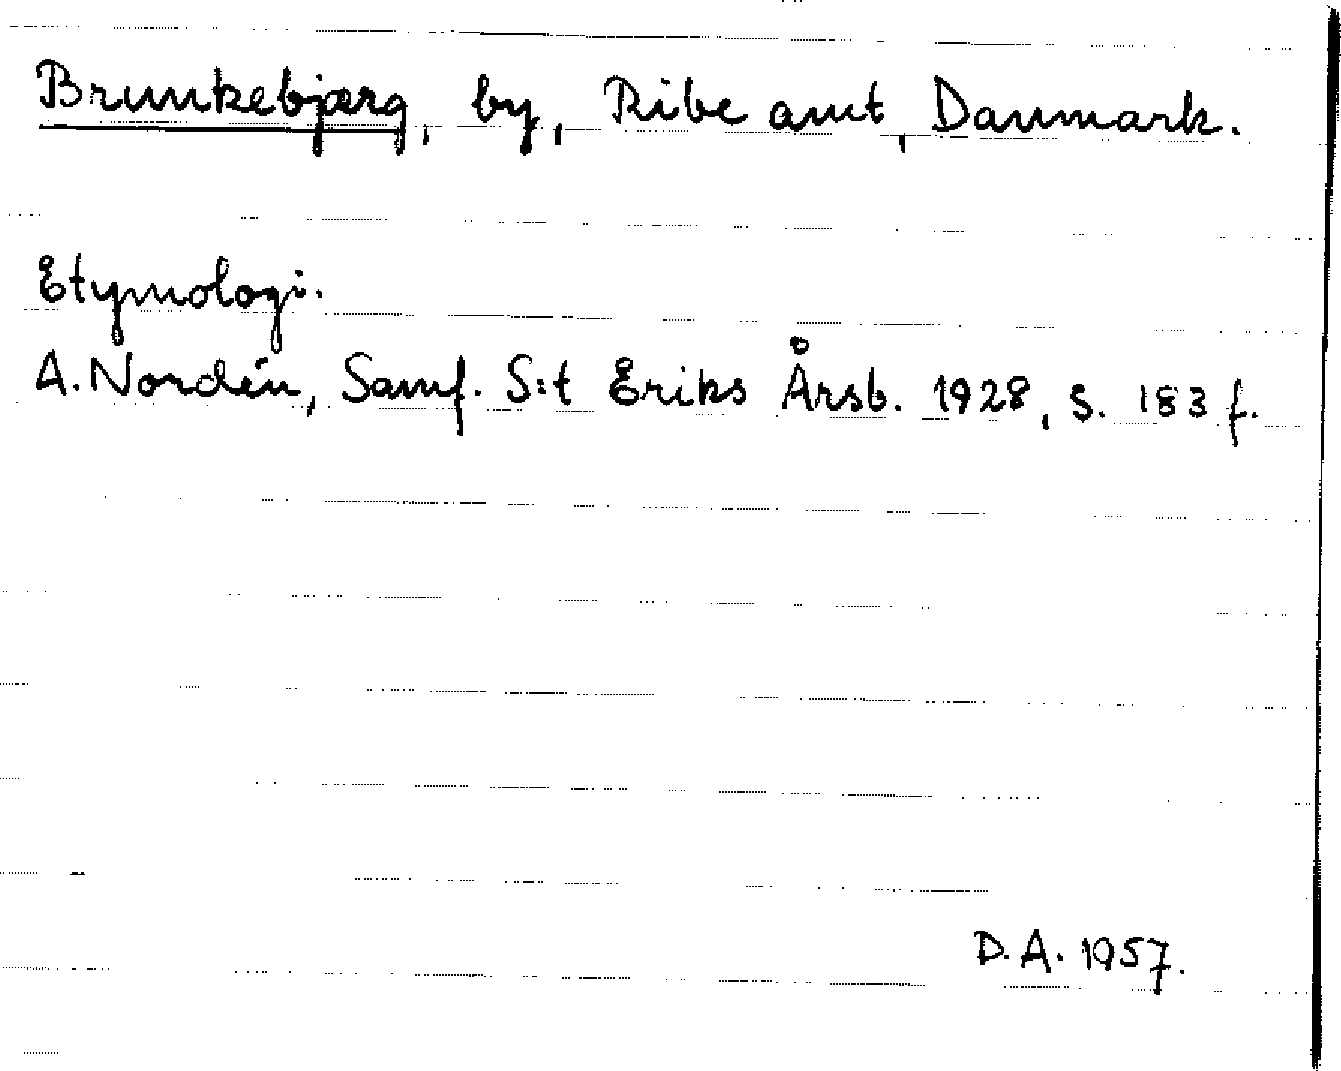 Brunkebjærg, by, Ribe amt, Danmark.
Etymologi.
A. Nordén, Samf. S:t Eriks Årsb. 1928, s. 183 f.
D.A. 1957.